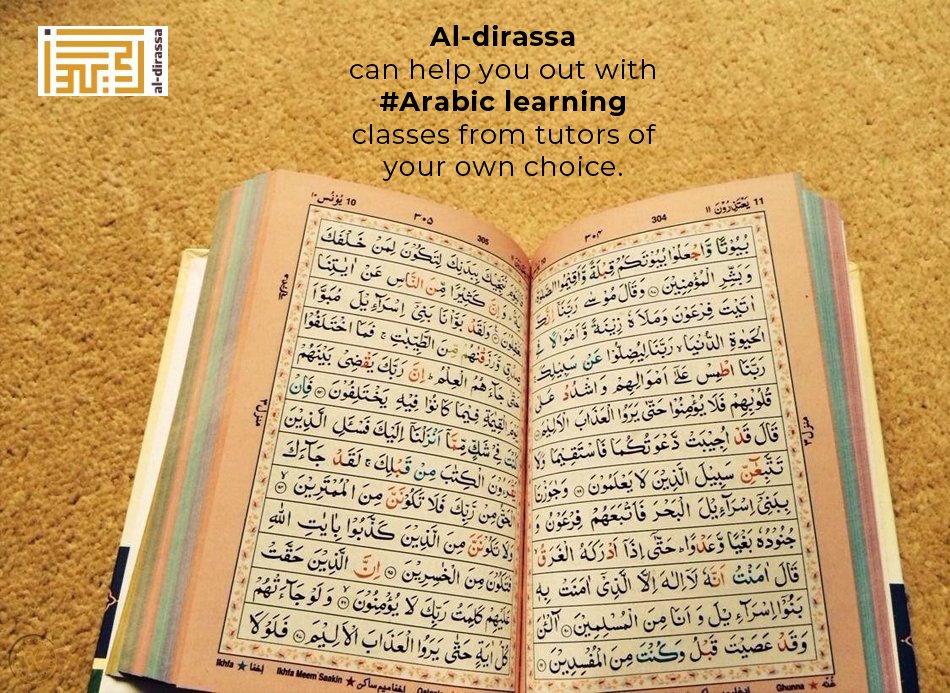 al-dirassa
Al-dirassa
can help you out with
#Arabic learning
classes from tutors of
your own choice.
يَعْتَذِرُوْنَ ١١ 11
304
٣٠٤
بُيُوْتًا وَّاجْعَلُوْا بُيُوْتَكُمْ قِبْلَةً وَّاَقِيْمُوا الصَّلٰوةَ
وَبَشِّرِ الْمُؤْمِنِيْنَ ۝ وَقَالَ مُوْسٰى رَبَّنَاۤ اِنَّكَ
اٰتَيْتَ فِرْعَوْنَ وَمَلَاَهٗ زِيْنَةً وَّاَمْوَالًا فِى
الْحَيٰوةِ الدُّنْيَا ۙ رَبَّنَا لِيُضِلُّوْا عَنْ سَبِيْلِكَ
رَبَّنَا اطْمِسْ عَلٰٓى اَمْوَالِهِمْ وَاشْدُدْ عَلٰى
قُلُوْبِهِمْ فَلَا يُؤْمِنُوْا حَتّٰى يَرَوُا الْعَذَابَ الْاَلِيْمَ ۝
قَالَ قَدْ اُجِيْبَتْ دَّعْوَتُكُمَا فَاسْتَقِيْمَا وَلَا
تَتَّبِعٰٓنِّ سَبِيْلَ الَّذِيْنَ لَا يَعْلَمُوْنَ ۝ وَجٰوَزْنَا
بِبَنِىْٓ اِسْرَآءِيْلَ الْبَحْرَ فَاَتْبَعَهُمْ فِرْعَوْنُ وَ
جُنُوْدُهٗ بَغْيًا وَّعَدْوًا ؕ حَتّٰٓى اِذَآ اَدْرَكَهُ الْغَرَقُ
قَالَ اٰمَنْتُ اَنَّهٗ لَآ اِلٰهَ اِلَّا الَّذِىْٓ اٰمَنَتْ بِهٖ
بَنُوْٓا اِسْرَآءِيْلَ وَاَنَا مِنَ الْمُسْلِمِيْنَ ۝ آٰلْـٰٔنَ
وَقَدْ عَصَيْتَ قَبْلُ وَكُنْتَ مِنَ الْمُفْسِدِيْنَ ۝
منزل ٣
Ghunna ★ غُنّه
305
٣٠٥
يُوْنُس ١٠ 10
نُنَجِّيْكَ بِبَدَنِكَ لِتَكُوْنَ لِمَنْ خَلْفَكَ
وَاِنَّ كَثِيْرًا مِّنَ النَّاسِ عَنْ اٰيٰتِنَا
لَغٰفِلُوْنَ ۝ وَلَقَدْ بَوَّاْنَا بَنِىْٓ اِسْرَآءِيْلَ مُبَوَّاَ
صِدْقٍ وَّرَزَقْنٰهُمْ مِّنَ الطَّيِّبٰتِ ۚ فَمَا اخْتَلَفُوْا
حَتّٰى جَآءَهُمُ الْعِلْمُ ؕ اِنَّ رَبَّكَ يَقْضِىْ بَيْنَهُمْ
يَوْمَ الْقِيٰمَةِ فِيْمَا كَانُوْا فِيْهِ يَخْتَلِفُوْنَ ۝ فَاِنْ
كُنْتَ فِىْ شَكٍّ مِّمَّآ اَنْزَلْنَآ اِلَيْكَ فَسْـَٔلِ الَّذِيْنَ
يَقْرَءُوْنَ الْكِتٰبَ مِنْ قَبْلِكَ ۚ لَقَدْ جَآءَكَ
الْحَقُّ مِنْ رَّبِّكَ فَلَا تَكُوْنَنَّ مِنَ الْمُمْتَرِيْنَ ۝
وَلَا تَكُوْنَنَّ مِنَ الَّذِيْنَ كَذَّبُوْا بِاٰيٰتِ اللّٰهِ
فَتَكُوْنَ مِنَ الْخٰسِرِيْنَ ۝ اِنَّ الَّذِيْنَ حَقَّتْ
عَلَيْهِمْ كَلِمَتُ رَبِّكَ لَا يُؤْمِنُوْنَ ۝ وَلَوْ جَآءَتْهُمْ
كُلُّ اٰيَةٍ حَتّٰى يَرَوُا الْعَذَابَ الْاَلِيْمَ ۝ فَلَوْلَا
منزل ٣
Ikhfa ★ اخفا Ikhfa Meem Saakin ★ اخفا ميم ساكن